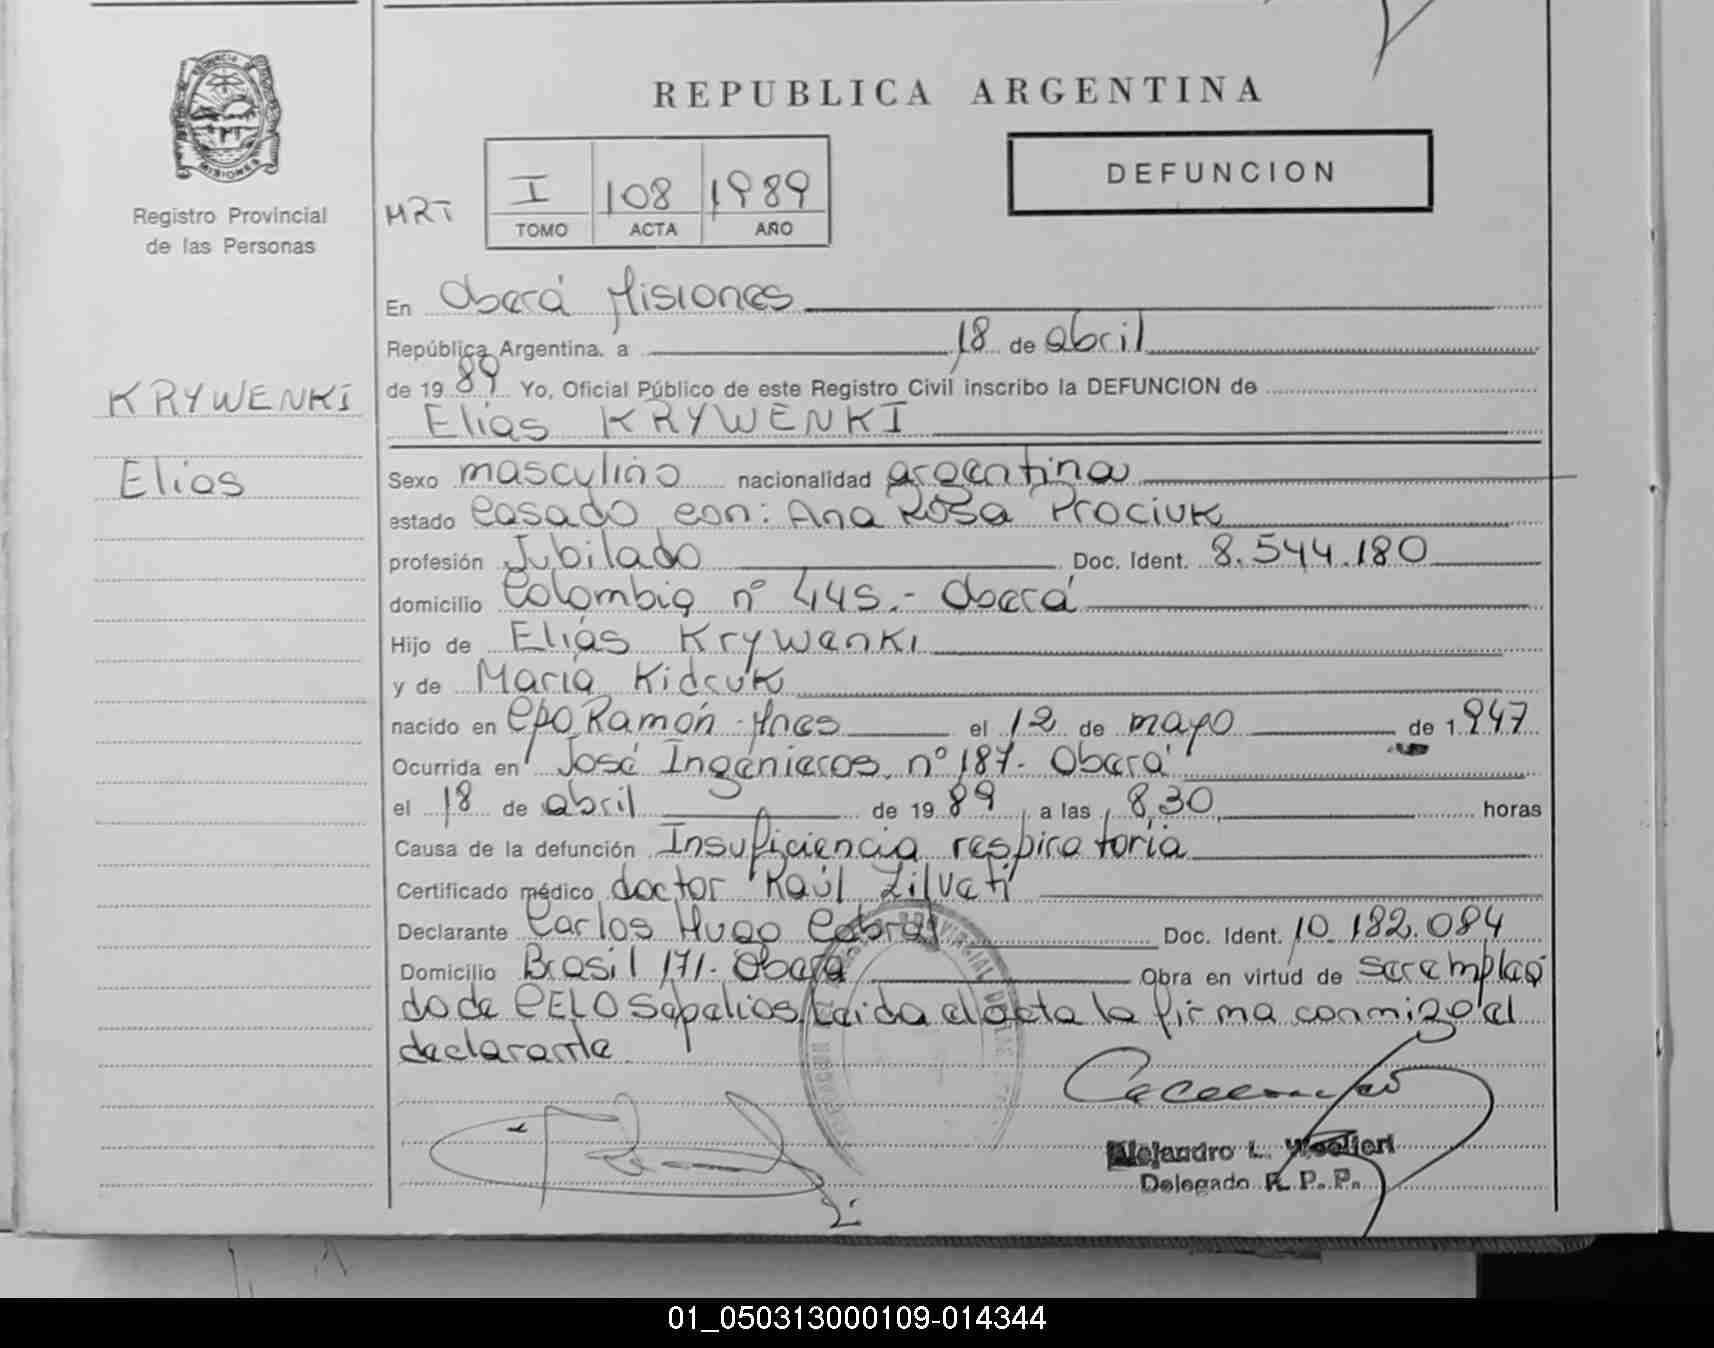 REPUBLICA ARGENTINA
DEFUNCION
PROVINCIA DE
MISIONES
Registro Provincial
de las Personas
MRT
I 108 1989
TOMO ACTA AÑO
En Oberá Misiones
República Argentina, a 18 de abril
de 1989 Yo, Oficial Público de este Registro Civil inscribo la DEFUNCION de
Elias KRYWENKI
KRYWENKI
Elias
Sexo masculino nacionalidad argentina
estado casado con: Ana Rosa Prociuk
profesión Jubilado Doc. Ident. 8.544.180
domicilio Colombia nº 445.- Oberá
Hijo de Eliás Krywenki
y de María
nacido en Cpo Ramón - Mnes el 12 de mayo de 1947
Ocurrida en José Ingenieros nº 187. Oberá
el 18 de abril de 1989 a las 8,30 horas
Causa de la defunción Insuficiencia respiratoria
Certificado médico doctor Raúl
Declarante Carlos Hugo Cabral Doc. Ident. 10.182.084
Domicilio Brasil 171. Oberá Obra en virtud de ser emplea
do de CELO Sepelios, Leida el acta la firma conmigo el
declarante
Alejandro L.
Delegado R. P. P.
01_050313000109-014344